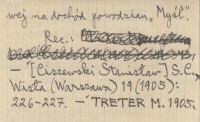 wej na dochód powodzian „Myśl".
Rec.:
— [Ciszewski Stanisław] S.C.,
Wisła (Warszawa) 19 (1905):
226-227. — TRETER M. 1905.